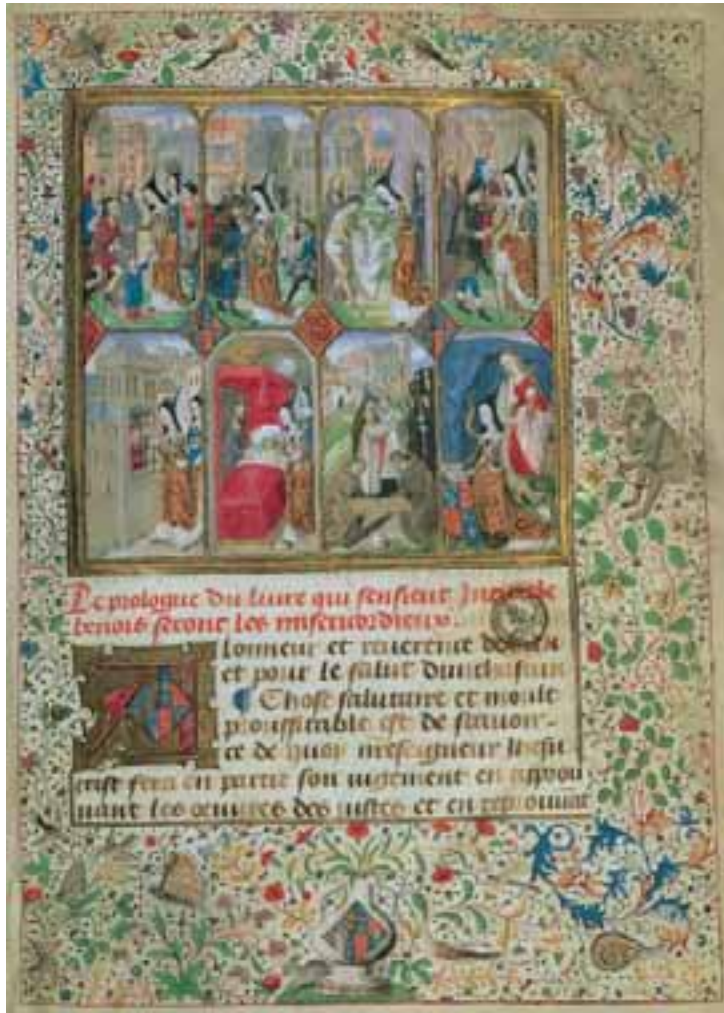 Le prologue du liure qui sensieut Intitule
benois seront les misericordieux.
lonneur et reuerence de
et pour le salut dun chascun
¶ Chose salutaire et moult
prouffitable est de scauoir
ce de quoy nreseigneur Ihesu
crist fera en partie son iugement en approu
uant les œuures des iustes et en reprouuat